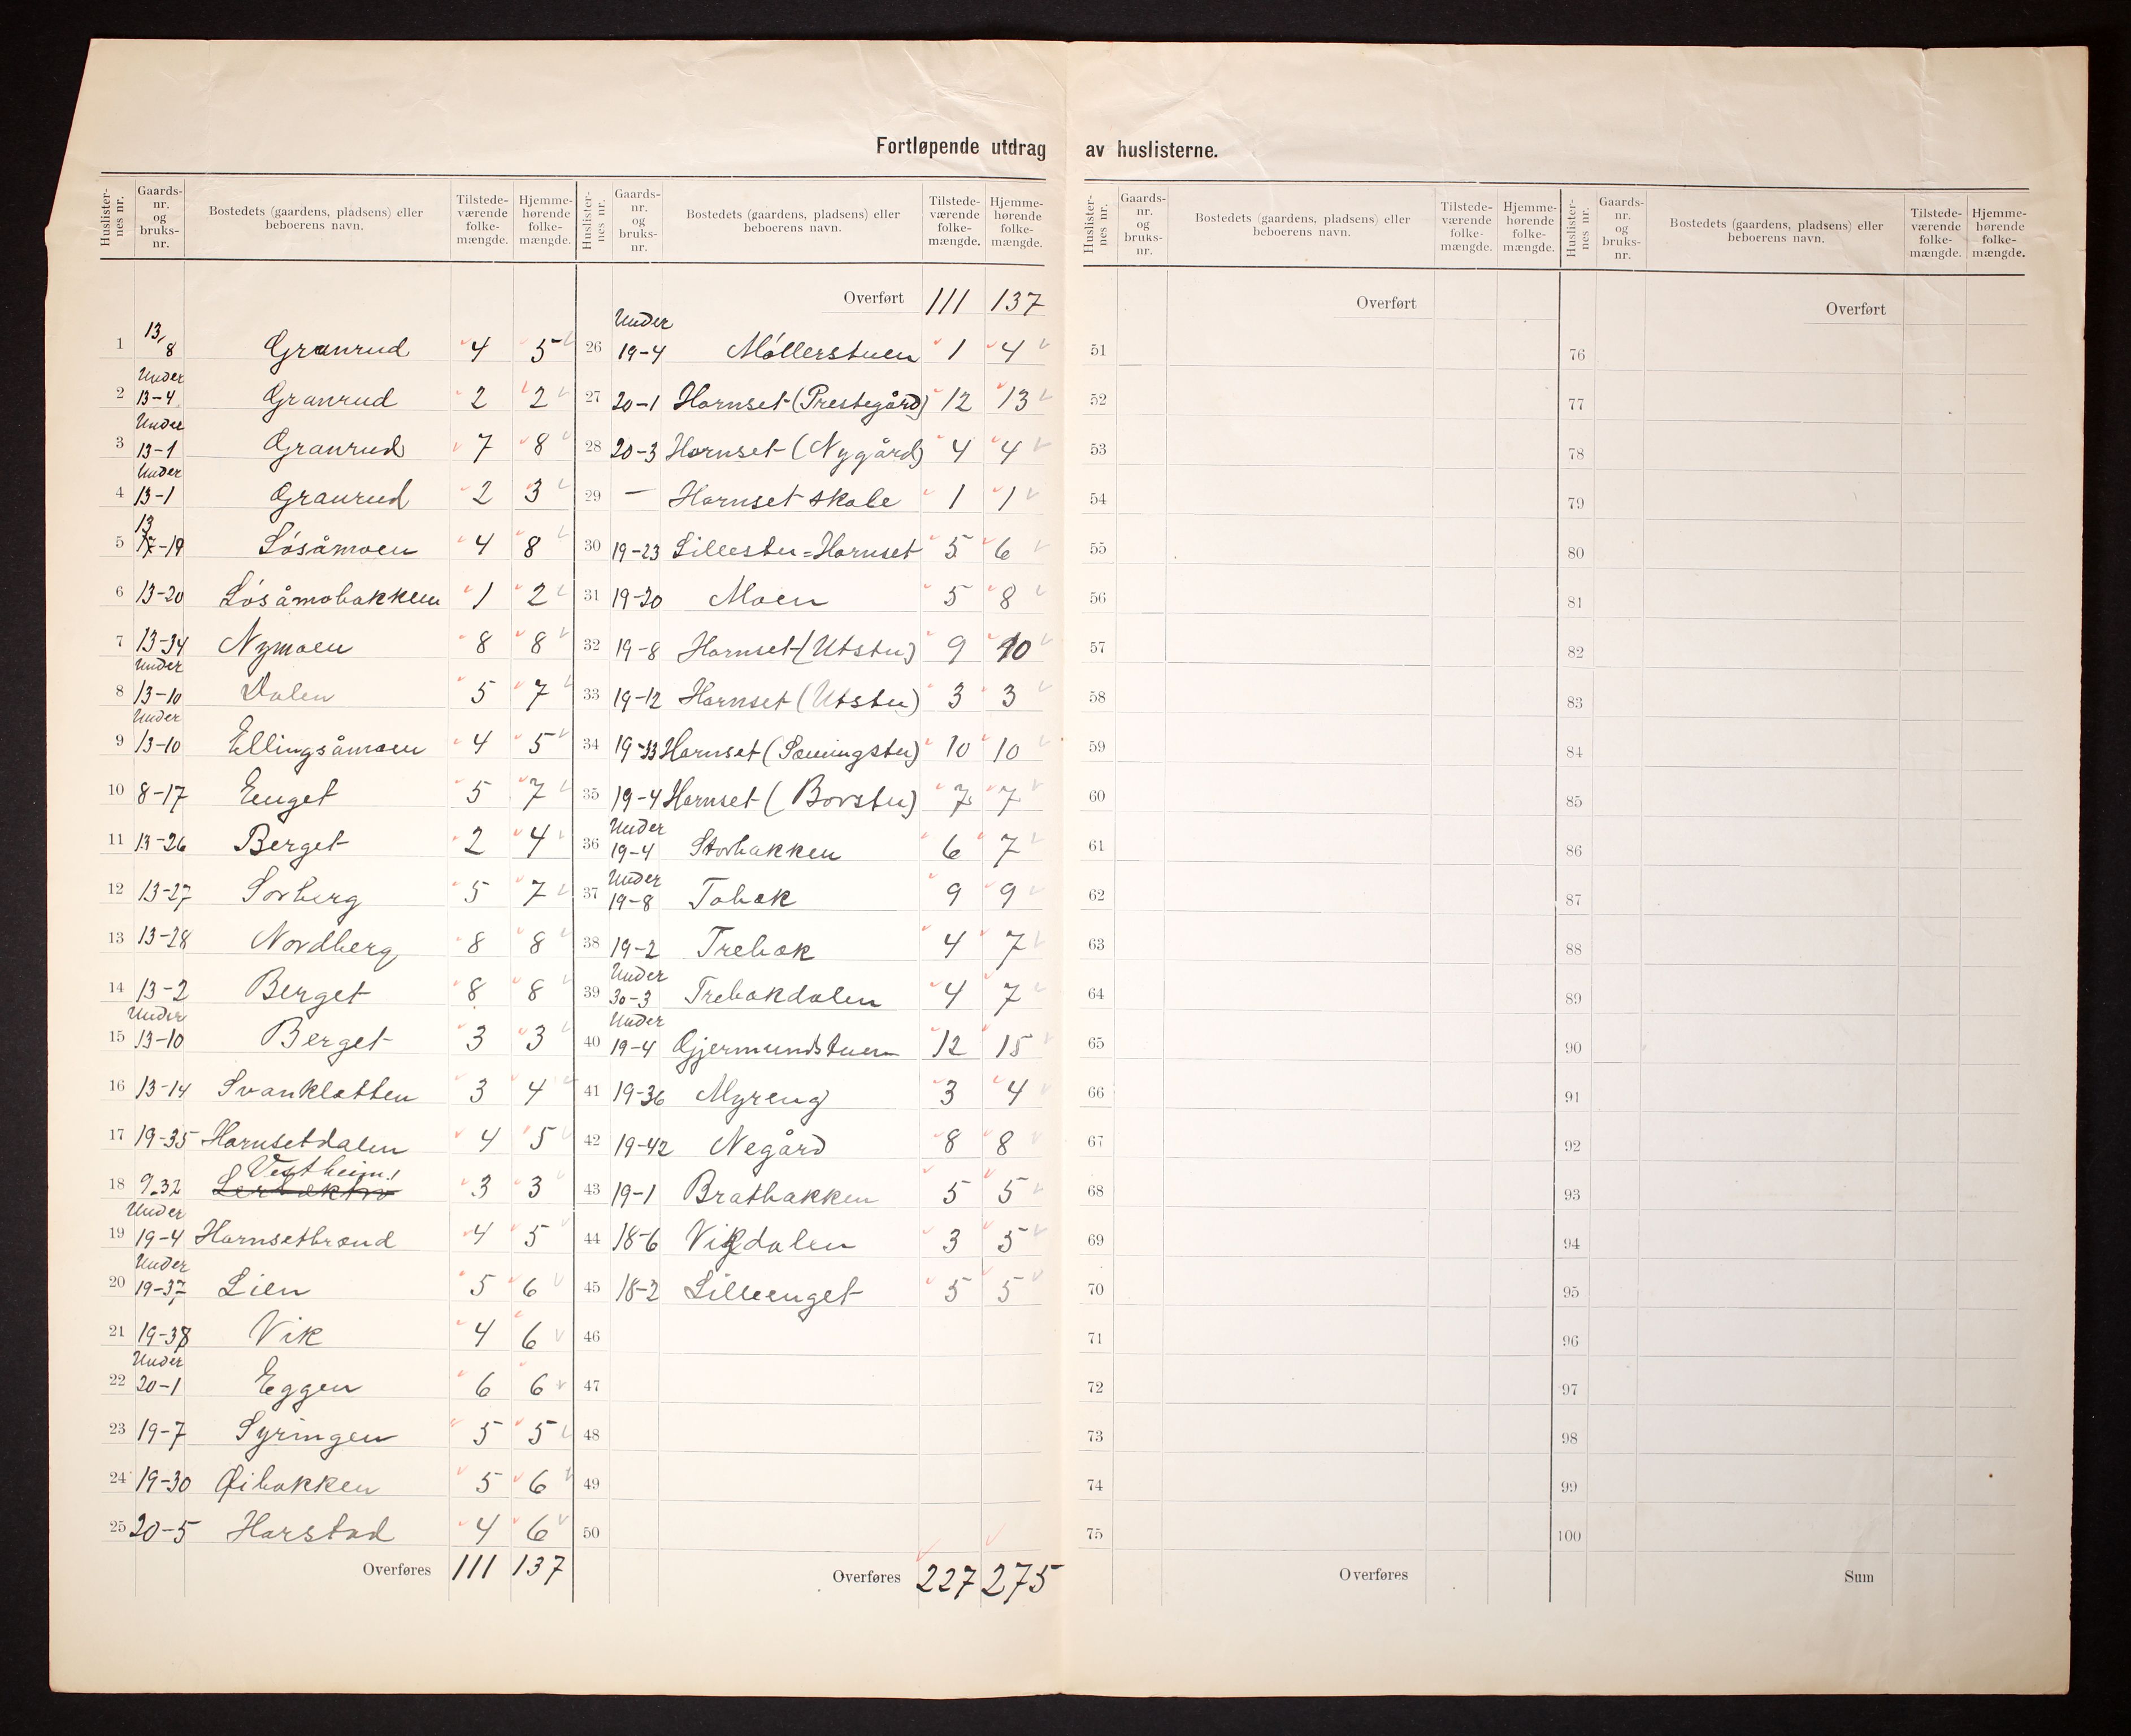 Fortløpende utdrag av huslisterne.
Huslister-nes nr. Gaards-nr. og bruks-nr. Bostedets (gaardens, pladsens) eller beboerens navn. Tilstede-værende folke-mængde. Hjemme-hørende folke-mængde.
1 13/8 Granrud 4 5
2 Under 13-4 Granrud 2 2
3 Under 13-1 Granrud 7 8
4 Under 13-1 Granrud 2 3
5 13-19 Løsåmoen 4 8
6 13-20 Løsåmobakken 1 2
7 13-34 Nymoen 8 8
8 Under 13-10 Dalen 5 7
9 Under 13-10 Ellingsåmoen 4 5
10 8-17 Enget 5 7
11 13-26 Berget 2 4
12 13-27 Sørberg 5 7
13 13-28 Nordberg 8 8
14 13-2 Berget 8 8
15 Under 13-10 Berget 3 3
16 13-14 Svankletten 3 4
17 19-35 Hornsetdalen 4 5
18 9-32 Vestheim! 3 3
19 Under 19-4 Hornsetbrænd 4 5
20 Under 19-37 Lien 5 6
21 19-38 Vik 4 6
22 Under 20-1 Eggen 6 6
23 19-7 Syringen 5 5
24 19-30 Øibakken 5 6
25 20-5 Harstad 4 6
Overføres 111 137
Huslister-nes nr. Gaards-nr. og bruks-nr. Bostedets (gaardens, pladsens) eller beboerens navn. Tilstede-værende folke-mængde. Hjemme-hørende folke-mængde.
Overført 111 137
26 Under 19-4 Møllerstuen 1 4
27 20-1 Hornset (Prestegård) 12 13
28 20-3 Hornset (Nygård) 4 4
29 — Hornset skole 1 1
30 19-23 Lillestu=Hornset 5 6
31 19-20 Moen 5 8
32 19-8 Hornset (Utstu) 9 10
33 19-12 Hornset (Utstu) 3 3
34 19-33 Hornset (Sæmingstu) 10 10
35 19-4 Hornset (Borstu) 7 7
36 Under 19-4 Storbakken 6 7
37 Under 19-8 Tobak 9 9
38 19-2 Trebæk 4 7
39 Under 30-3 Trebækdalen 4 7
40 Under 19-4 Gjermundstuen 12 15
41 19-36 Myreng 3 4
42 19-42 Negård 8 8
43 19-1 Bratbakken 5 5
44 18-6 Vikdalen 3 5
45 18-2 Lilleenget 5 5
46
47
48
49
50
Overføres 227 275
Huslister-nes nr. Gaards-nr. og bruks-nr. Bostedets (gaardens, pladsens) eller beboerens navn. Tilstede-værende folke-mængde. Hjemme-hørende folke-mængde.
Overført
51
52
53
54
55
56
57
58
59
60
61
62
63
64
65
66
67
68
69
70
71
72
73
74
75
Overføres
Huslister-nes nr. Gaards-nr. og bruks-nr. Bostedets (gaardens, pladsens) eller beboerens navn. Tilstede-værende folke-mængde. Hjemme-hørende folke-mængde.
Overført
76
77
78
79
80
81
82
83
84
85
86
87
88
89
90
91
92
93
94
95
96
97
98
99
100
Sum